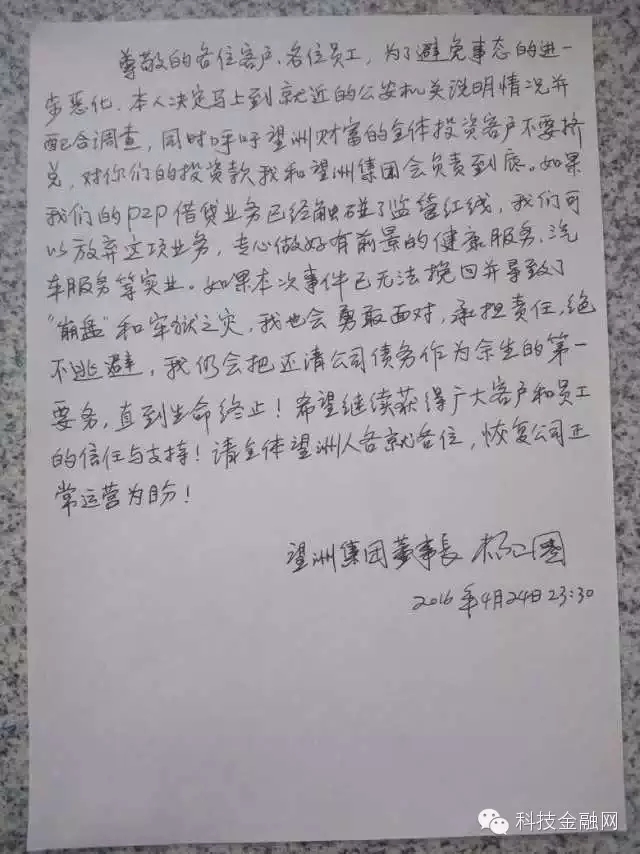 尊敬的各位客户、各位员工，为了避免事态的进一
步恶化，本人决定马上到就近的公安机关说明情况并
配合调查，同时呼吁望洲财富的全体投资客户不要挤
兑，对你们的投资款我和望洲集团会负责到底。如果
我们的P2P借贷业务已经触碰了监管红线，我们可
以放弃这项业务，专心做好有前景的健康服务、洗
车服务等实业。如果本次事件已无法挽回并导致了
“崩盘”和牢狱之灾，我也会勇敢面对，承担责任，绝
不逃避，我仍会把还清公司债务作为余生的第一
要务，直到生命终止！希望继续获得广大客户和员工
的信任与支持！请全体望洲人各就各位，恢复公司正
常运营为盼！
望洲集团董事長 杨卫国
2016年4月24日23:30
科技金融网